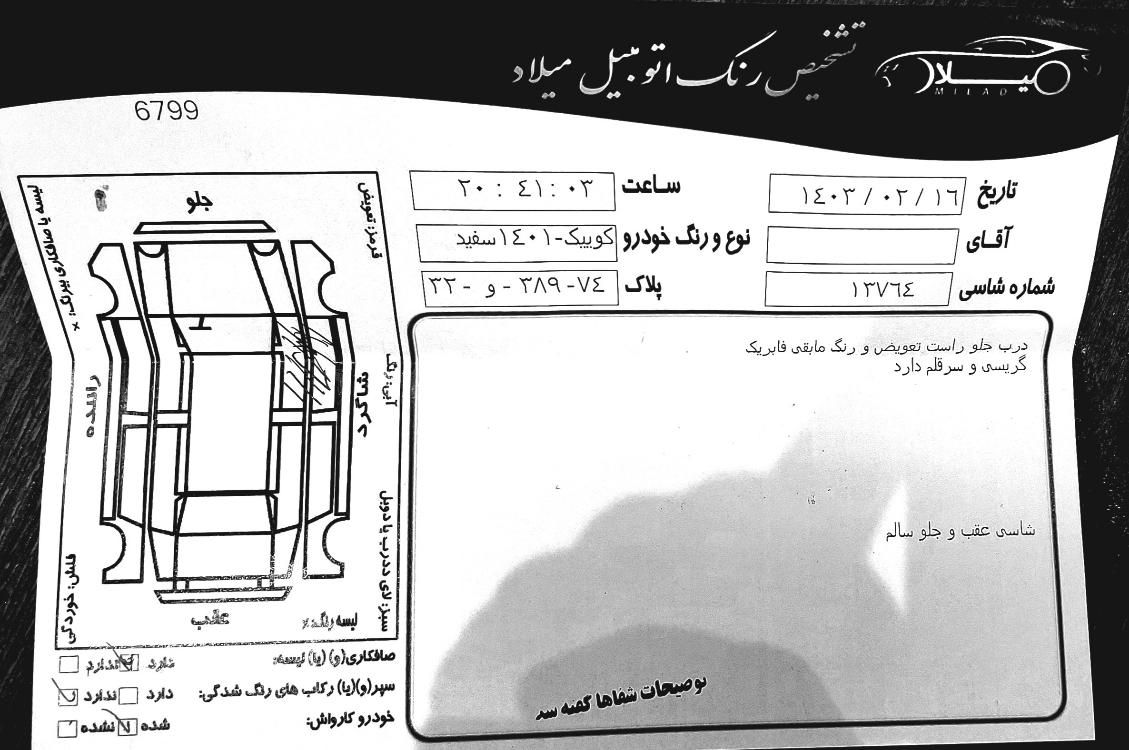 تشخیص رنگ اتومبیل میلاد
میلاد
MILAD
6799
تاریخ ۱۴۰۳ / ۰۲ / ۱۶
ساعت ۲۰ : ۴۱ : ۰۳
آقـای
نوع و رنگ خودرو کوییک-۱۴۰۱سفید
شماره شاسی ۱۳۷۶۴
پلاک ۳۲ - و - ۳۸۹-۷۴
درب جلو راست تعویض و رنگ مابقی فابریک
گریسی و سرقلم دارد
شاسی عقب و جلو سالم
توضیحات شفاها گفته شد
جلو
لیسه یا صافکاری بیرنگ: ×
قرمز: تعویض
راننده
شاگرد
آبی: رنگ
سبز: لای درب یا دوبل
فلش: خوردگی
عقب
لیسه رنگ: ×
صافکاری(و) (یا) لیسه: دارد ندارد
سپر(و)(یا) رکاب های رنگ شدگی: دارد ندارد
خودرو کارواش: شده نشده